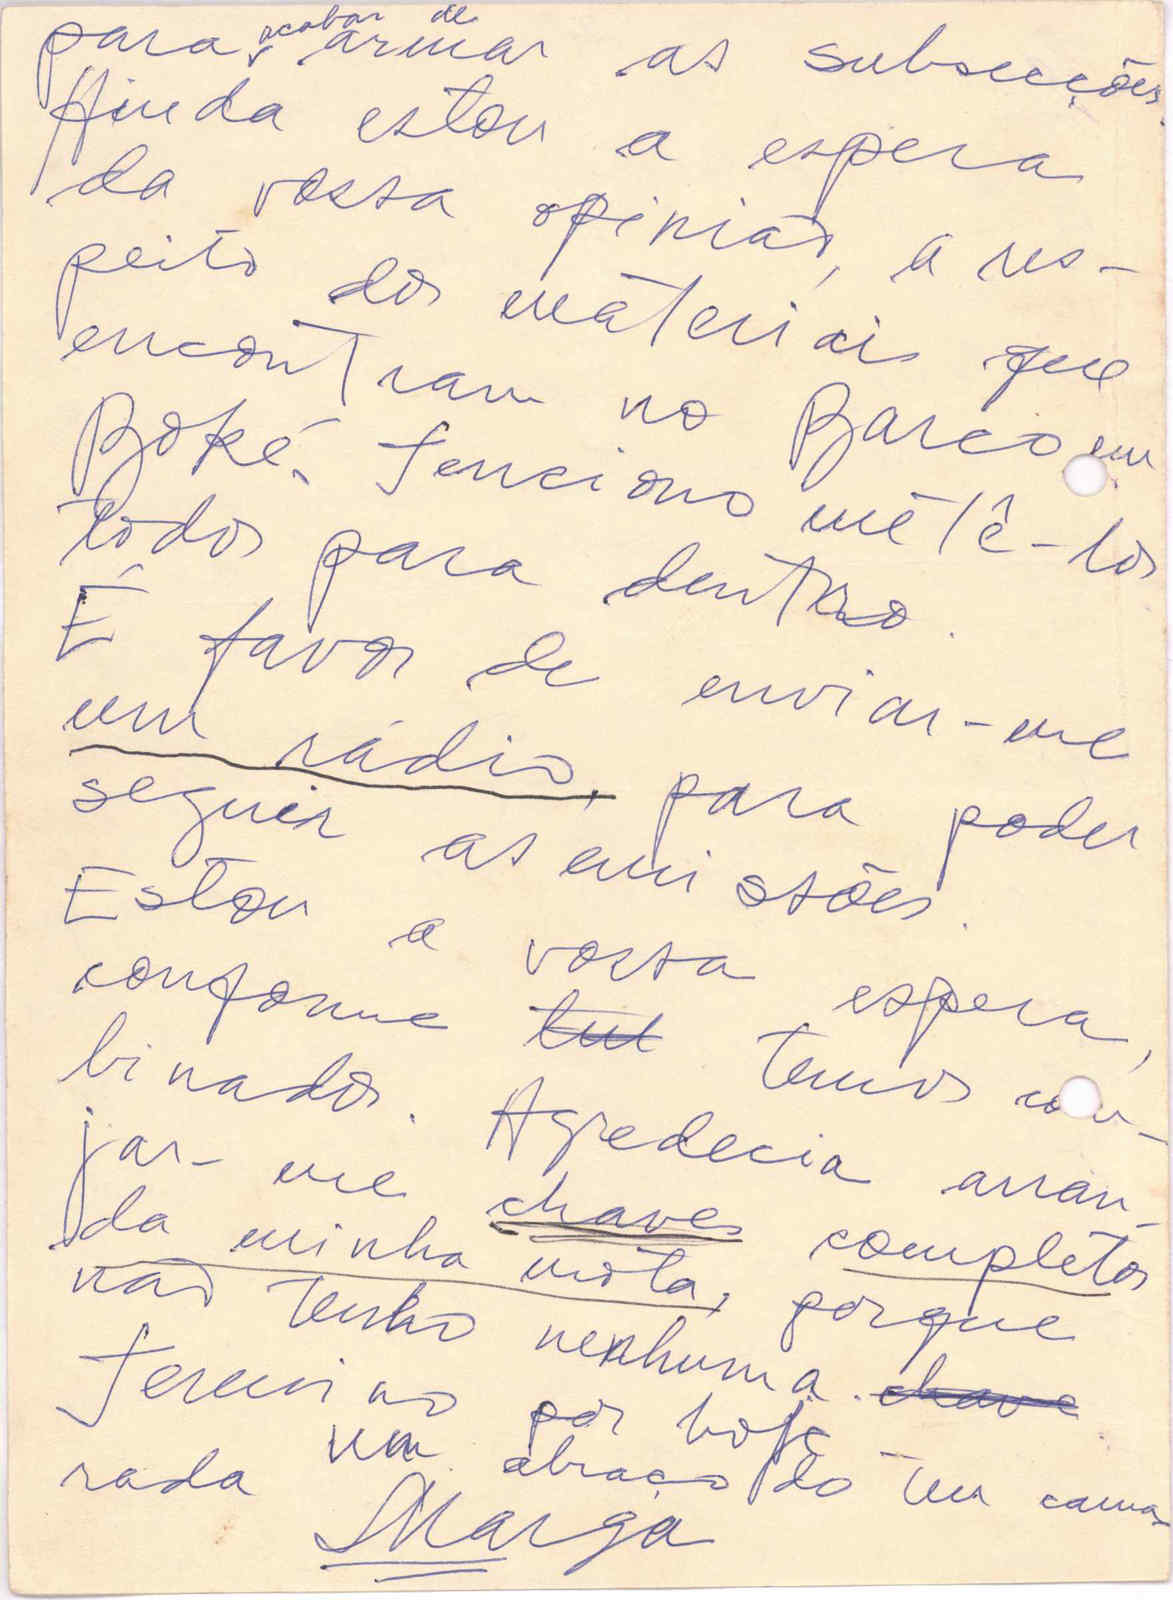 para acabar de armar as subsecções.
Ainda estou a espera
da vossa opinião, a res-
peito dos materiais que
encontram no Barco em
Boké. Tenciono metê-los
todos para dentro.
É favor de enviar-me
um rádio, para poder
seguir as emissões.
Estou a vossa espera,
conforme temos com-
binados. Agredecia arran-
jar-me chaves completos
da minha mota, porque
não tenho nenhuma. chave
Termino por hoje
um abraço do teu cama-
rada